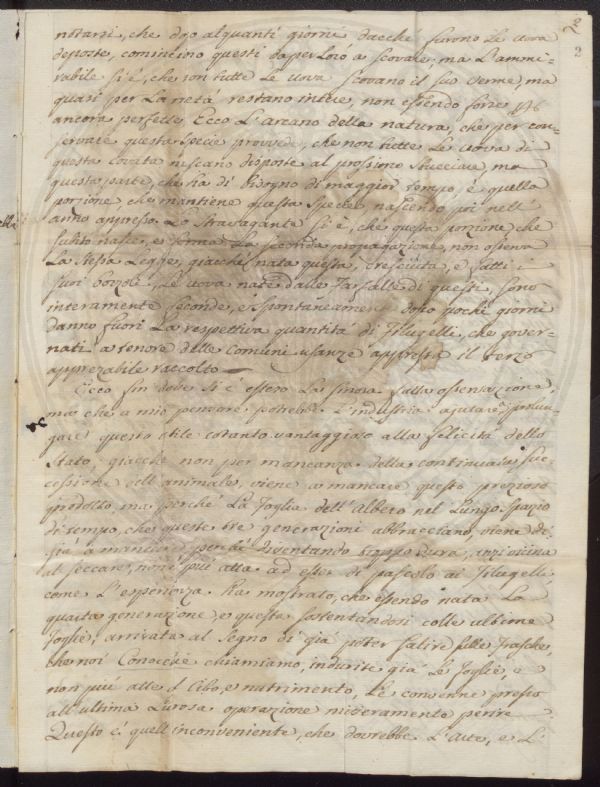 2
2
notarsi, che dopo alquanti giorni dacchè furono le uova
deposte, comincino questi da per loro a scovare, ma l'ammi-
rabile si è, che non tutte le uova scovano il suo verme, ma
quasi per la metà restano intere, non essendo forse
ancora perfette. Ecco l'arcano della natura, che per con-
servare questa specie provvede, che non tutte le uova di
questa covata nescano disposte al prossimo sbucciare, ma
questa parte, che ha di bisogno di maggior tempo, è quella
porzione, che mantiene questa specie nascendo poi nell'
anno appresso. Lo stravagante si è, che questa porzione, che
subito nasce, e forma la seconda propagazione, non osserva
la stessa legge, giacchè nata questa, cresciuta, e fatti i
suoi bozzoli, le uova nate dalle farfalle di questi, sono
interamente feconde, e spontaneamente dopo pochi giorni
danno fuori la respettiva quantità di Filugelli, che gover-
nati a tenore delle comuni usanze appresta il terzo
apprezabile raccolto.
Ecco fin dove si è estesa la finora fatta osservazione,
ma che a mio pensare potrebbe l'industria ajutare, e prolun-
gare questo utile cotanto vantaggioso alla felicità dello
Stato, giacchè non per mancanza della continuata suc-
cessione dell'animale, viene a mancare questo prezioso
prodotto, ma perchè la foglia dell'Albero nel lungo spazio
di tempo, che queste tre generazioni abbracciano, viene di
già a mancare, perchè diventando troppo dura, e vicina
al seccare, non è più atta ad esser di pascolo ai Filugelli,
come l'esperienza ha mostrato, che essendo nata la
quarta generazione, e questa sostentandosi colle ultime
foglie, arrivata al segno di già poter salire sulle frasche,
che noi Conocchie chiamiamo, indurite già le foglie, e
non più atte al Cibo, e nutrimento, le convenne presso
all'ultima serosa operazione miseramente perire.
Questo è quell'inconveniente, che dovrebbe l'Arte, e l'